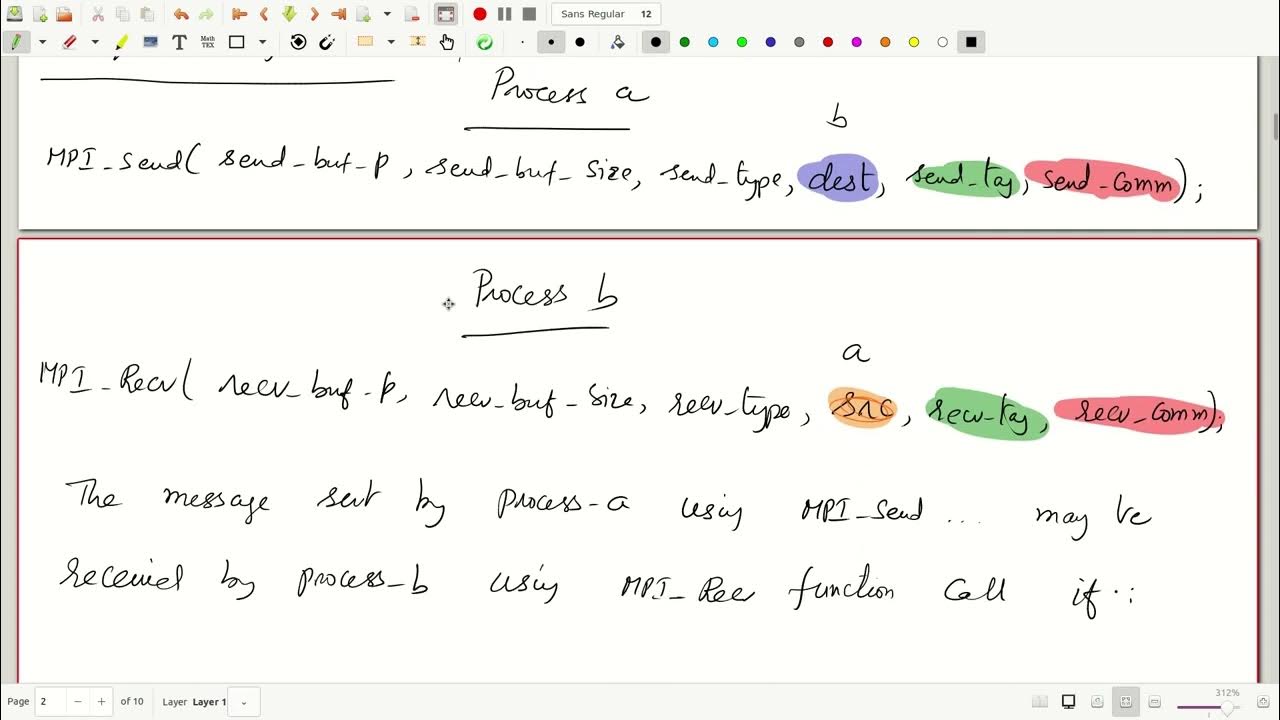 Sans Regular 12
Math
TEX
Process a
b
MPI_Send( send_buf_p, send_buf_size, send_type, dest, send_tag, send_comm);
Process b
a
MPI_Recv( recv_buf_p, recv_buf_size, recv_type, src, recv_tag, recv_comm);
The message sent by process-a using MPI_Send ... may be
received by process-b using MPI_Recv function call if :
Page 2 of 10 Layer Layer 1 312%